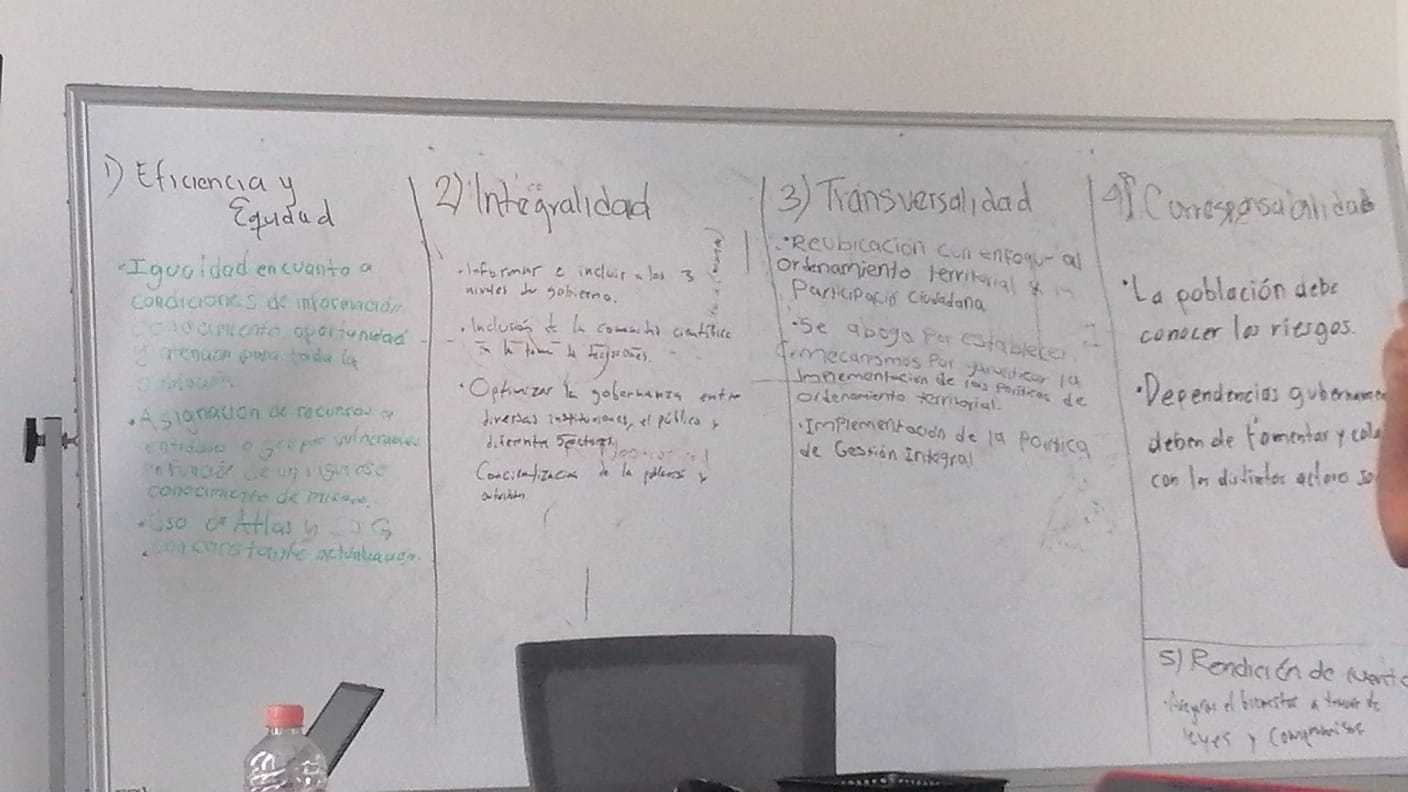 1) Eficiencia y
Equidad
•Igualdad en cuanto a
condiciones de información
conocimiento oportunidad
y para toda la
población
•Asignación de recursos a
entidades o grupos vulnerables
en función de un riguroso
conocimiento de
•Uso de Atlas y
con constante actualización.
2) Integralidad
•Informar e incluir a los 3
niveles de gobierno.
•Inclusión de la comunidad científica
en la toma de decisiones.
•Optimizar la gobernanza entre
diversas instituciones, el público y
diferentes sectores
Concientización de la población y
3) Transversalidad
•Reubicación con enfoque al
ordenamiento territorial y la
Participación Ciudadana
•Se aboga por establecer
mecanismos por garantizar la
implementación de las políticas de
ordenamiento territorial.
•Implementación de la Política
de Gestión Integral
4) Corresponsabilidad
•La población debe
conocer los riesgos.
•Dependencias gubername
deben de fomentar y cola
con los distintos actores so
5) Rendición de cuent
•Asegurar el bienestar a través de
leyes y compromisos